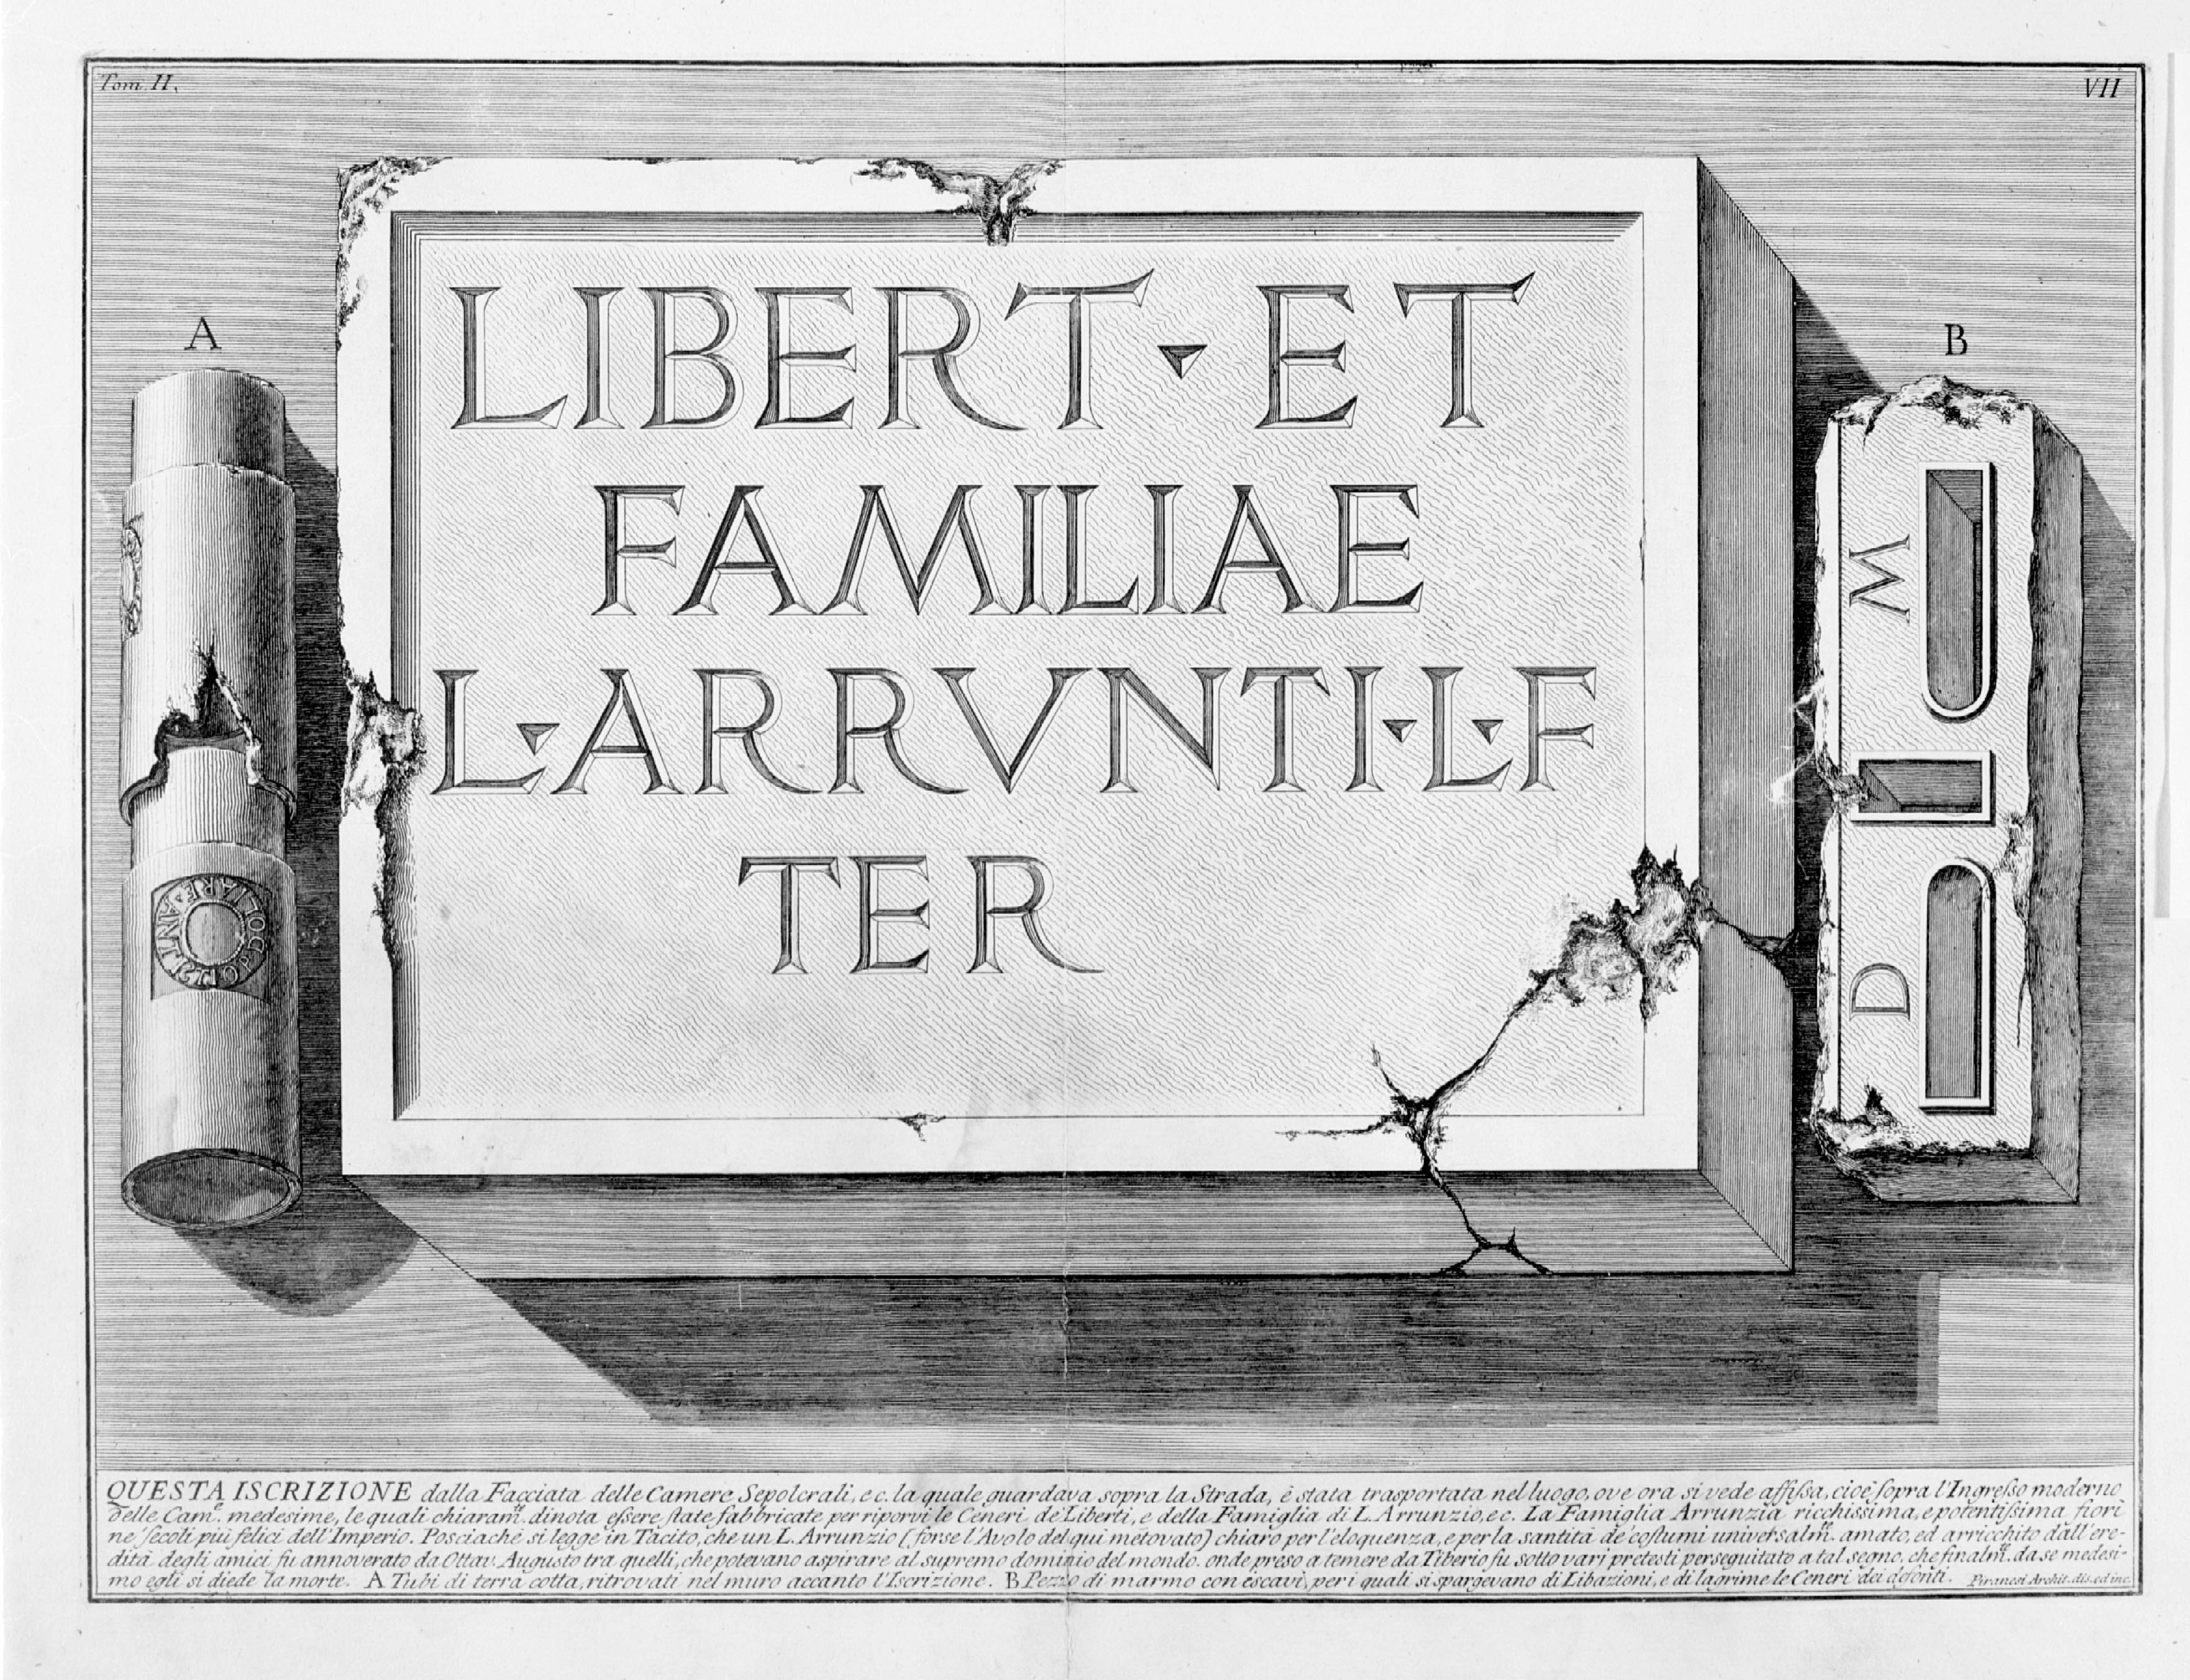 Tom. II.
VII
A
B
LIBERT ▾ ET
FAMILIAE
L ▾ ARRVNTI ▾ L ▾ F
TER
M
D
QUESTA ISCRIZIONE dalla Facciata delle Camere Sepolcrali, ec. la quale guardava sopra la Strada, è stata trasportata nel luogo, ove ora si vede affissa, cioè sopra l'Ingresso moderno
delle Cam.e medesime, le quali chiaram.te dinota essere state fabbricate per riporvi le Ceneri de' Liberti, e della Famiglia di L. Arrunzio, ec. La Famiglia Arrunzia ricchissima, e potentissima fiorì
ne' secoli più felici dell'Imperio. Posciachè si legge in Tacito, che un L. Arrunzio (forse l'Avolo del qui metovato) chiaro per l'eloquenza, e per la santità de' costumi universalm.te amato, ed arricchito dall'ere-
dità degli amici fu annoverato da Ottav. Augusto tra quelli, che potevano aspirare al supremo dominio del mondo. onde preso a temere da Tiberio fu sotto varj pretesti perseguitato a tal segno, che finalm.te da se medesi-
mo egli si diede la morte. A Tubi di terra cotta, ritrovati nel muro accanto l'Iscrizione. B Pezzo di marmo con iscavi, per i quali si spargevano di Libazioni, e di lagrime le Ceneri dei defonti. Piranesi Archit. dis. ed inc.